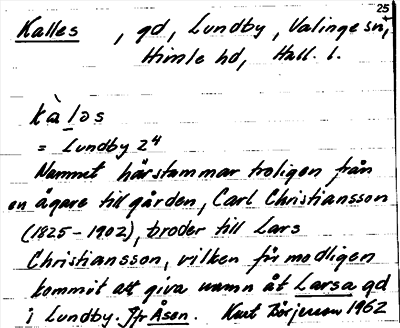 25
Kalles, gd, Lundby, Valinge sn,
Himle hd, Hall. l.
kàləs
= Lundby 2⁴
Namnet härstammar troligen från
en ägare till gården, Carl Christiansson
(1825-1902), broder till Lars
Christiansson, vilken förmodligen
kommit att giva namn åt Larsa gd
i Lundby. Jfr Åsen. Kurt Börjesson 1962